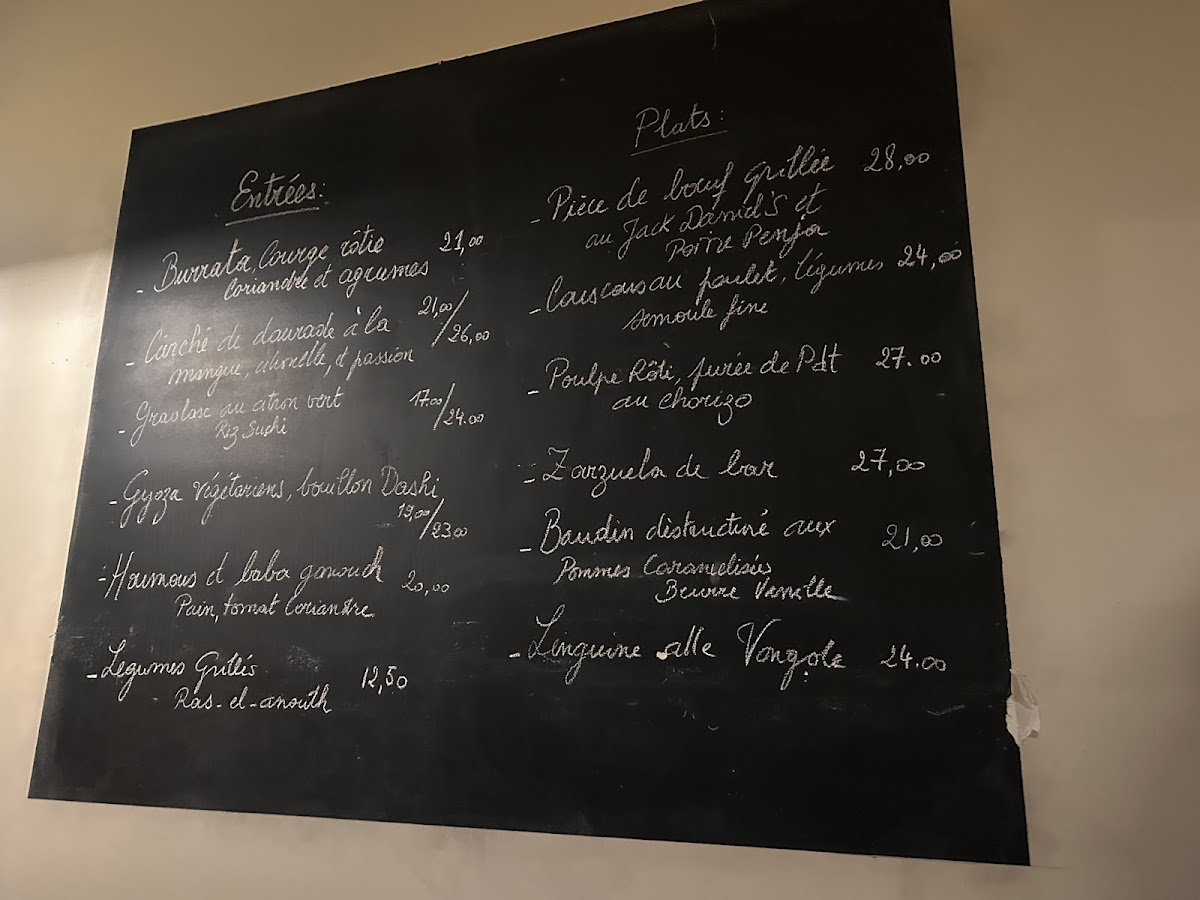 Entrées:
- Burrata, Courge rôtie 21,00
Coriandre et agrumes
- Cerché de daurade à la 21,00/26,00
mangue, citronelle, et passion
- Gravlax au citron vert 17.00/24.00
Riz Suchi
- Gyoza végétariens, bouillon Dashi
19,00/23.00
- Houmous et baba ganouch 20,00
Pain, tomat Coriandre
- Légumes Grillés 12,50
Ras-el-anouth
Plats:
- Pièce de bœuf grillée 28,00
au Jack Daniel's et
Poivre Penja
- Couscous au poulet, légumes 24,00
semoule fine
- Poulpe Rôti, purée de Pdt 27.00
au chorizo
- Zarzuela de bar 27,00
- Boudin déstructuré aux 21,00
Pommes Caramelisées
Beurre Vanille
- Linguine alle Vongole 24.00